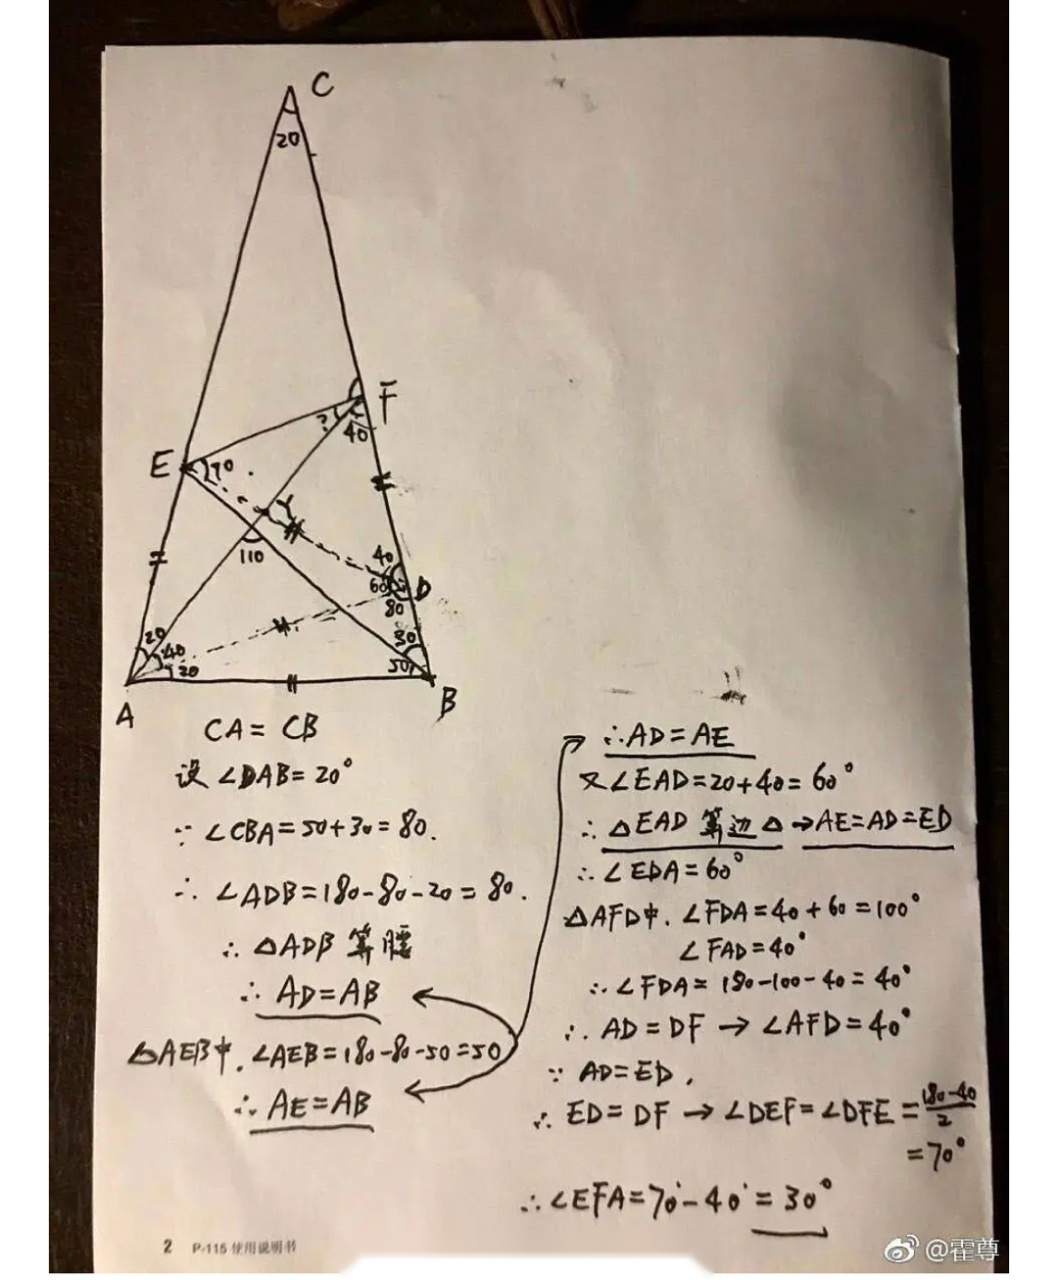 C
20
F
?
40
E
70
110
40
60
D
80
20
40
20
30
50
A
B
CA = CB
设 ∠DAB = 20°
∵ ∠CBA = 50 + 30 = 80.
∴ ∠ADB = 180 - 80 - 20 = 80.
∴ △ADB 等腰
∴ AD = AB
△AEB中. ∠AEB = 180 - 80 - 50 = 50
∴ AE = AB
∴ AD = AE
又∠EAD = 20 + 40 = 60°
∴ △EAD 等边△ → AE = AD = ED
∴ ∠EDA = 60°
△AFD中. ∠FDA = 40 + 60 = 100°
∠FAD = 40°
∴ ∠FDA = 180 - 100 - 40 = 40°
∴ AD = DF → ∠AFD = 40°
∵ AD = ED,
∴ ED = DF → ∠DEF = ∠DFE = (180-40)/2
= 70°
∴ ∠EFA = 70° - 40° = 30°
2 P-115 使用说明书
@霍尊